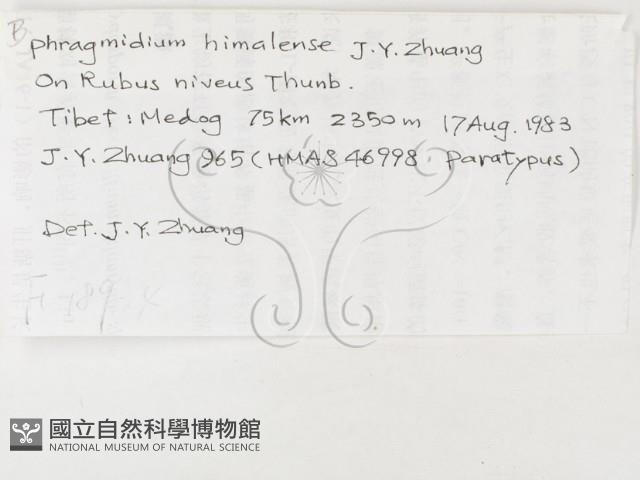 B
phragmidium himalense J.Y. Zhuang
On Rubus niveus Thunb.
Tibet : Medog 75km 2350m 17 Aug. 1983
J.Y. Zhuang 965 (HMAS 46998. Paratypus)
Det. J.Y. Zhuang
國立自然科學博物館
NATIONAL MUSEUM OF NATURAL SCIENCE